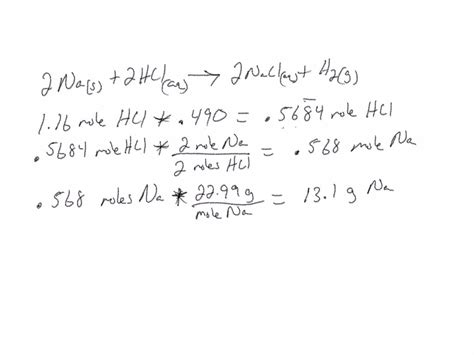 2Na(s) + 2HCl(aq) → 2NaCl(aq) + H2(g)
1.16 mole HCl * .490 = .5684 mole HCl
.5684 mole HCl * 2 mole Na / 2 moles HCl = .568 mole Na
.568 moles Na * 22.99 g / mole Na = 13.1 g Na